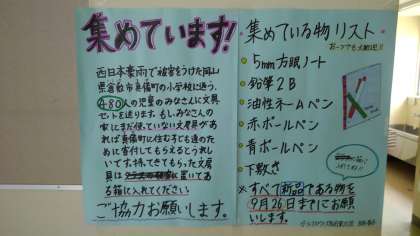 集めています!
西日本豪雨で被害をうけた岡山
県倉敷市真備町の小学校に通う、
480人の児童のみなさんに文具
セットを送ります。もしみなさんの
家にまだ使っていない文房具が
あれば真備町に住む子ども達のた
めに寄付してもらえるとうれし
いです。持ってきてもらった文房
具は
に置いてあ
る箱に入れてください。
ご協力お願いします。
集めている物リスト
5mm方眼ノート
鉛筆2B
油性ネームペン
赤ボールペン
青ボールペン
下敷き
※すべて新品である物を
9月26日までにお願
いします。